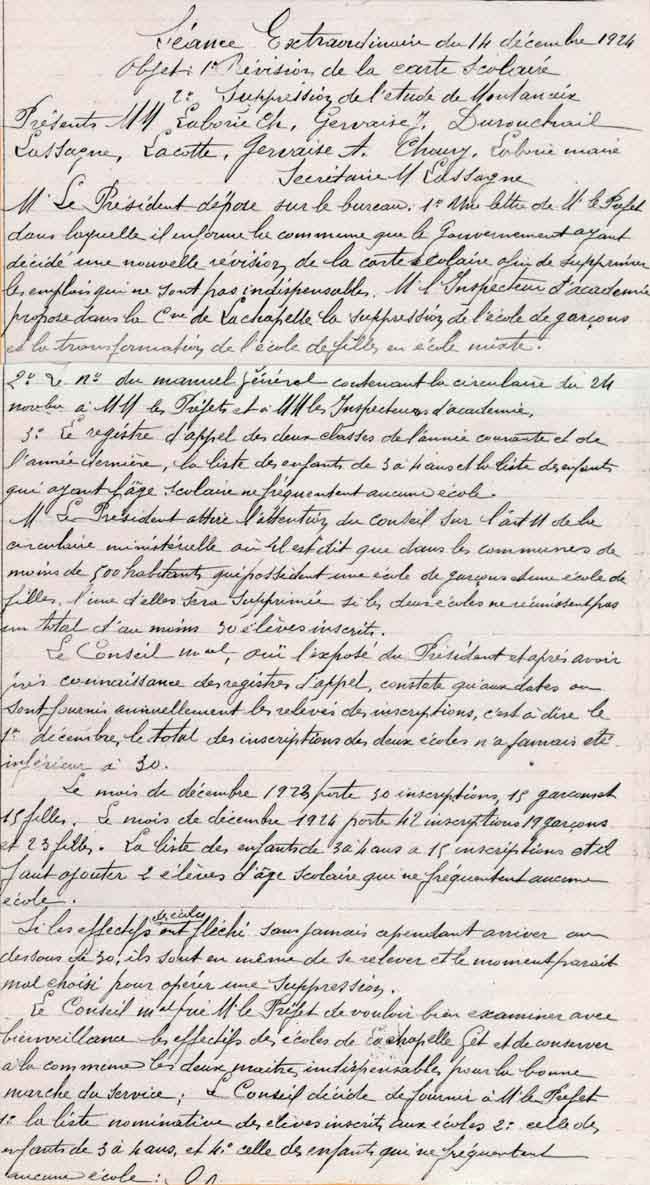 Séance Extraordinaire du 14 décembre 1924
Objet : 1° Révision de la carte scolaire
2° Suppression de l'étude de
Présents MM Laborie Ch, Gervaise J, Durouchail
Lassagne, Lacotte, Gervaise A. Choury, Laborie maire
Secrétaire M Lassagne
M. Le Président dépose sur le bureau : 1° Une lettre de M. le Préfet
dans laquelle il informe la commune que le Gouvernement ayant
décidé une nouvelle révision de la carte scolaire afin de supprimer
les emplois qui ne sont pas indispensables. M. l'Inspecteur d'académie
propose dans la Cne de Lachapelle la suppression de l'école de garçons
et la transformation de l'école de filles en école mixte.
2° Le n° du manuel général contenant la circulaire du 24
novbre à MM les Préfets et à MM les Inspecteurs d'académie,
3° Le registre d'appel des deux classes de l'année courante et de
l'année dernière, la liste des enfants de 3 à 4 ans et la liste des enfants
qui ayant l'âge scolaire ne fréquentent aucune école.
M. Le Président attire l'attention du conseil sur l'art 11 de la
circulaire ministérielle où il est dit que dans les communes de
moins de 500 habitants qui possèdent une école de garçons et une école de
filles, l'une d'elles sera supprimée si les deux écoles ne réunissent pas
un total d'au moins 30 élèves inscrits.
Le Conseil mal, ouï l'exposé du Président et après avoir
pris connaissance des registres d'appel, constate qu'aux dates où
sont fournis annuellement les relevés des inscriptions, c'est à dire le
1er décembre, le total des inscriptions des deux écoles n'a jamais été
inférieur à 30.
Le mois de décembre 1923 porte 30 inscriptions, 15 garçons et
15 filles. Le mois de décembre 1924 porte 42 inscriptions 19 garçons
et 23 filles. La liste des enfants de 3 à 4 ans a 15 inscriptions et il
faut ajouter 2 élèves d'âge scolaire qui ne fréquentent aucune
école.
Si les effectifs des écoles ont fléchi sans jamais cependant arriver au
dessous de 30, ils sont en même de se relever et le moment paraît
mal choisi pour opérer une suppression.
Le Conseil mal prie M. le Préfet de vouloir bien examiner avec
bienveillance les effectifs des écoles de Lachapelle Get et de conserver
à la commune les deux maîtres indispensables pour la bonne
marche du service ; Le Conseil décide de fournir à M. le Préfet
1° la liste nominative des élèves inscrits aux écoles 2° celle des
enfants de 3 à 4 ans, et 4° celle des enfants qui ne fréquentent
aucune école :